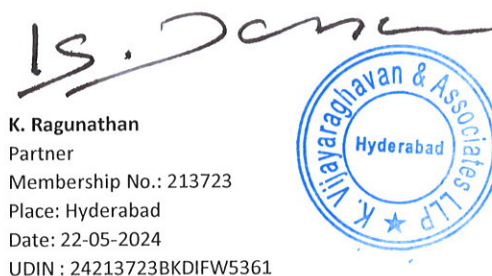 K. Ragunathan
Partner
Membership No.: 213723
Place: Hyderabad
Date: 22-05-2024
UDIN : 24213723BKDIFW5361
K. Vijayaraghavan & Associates LLP ★
Hyderabad